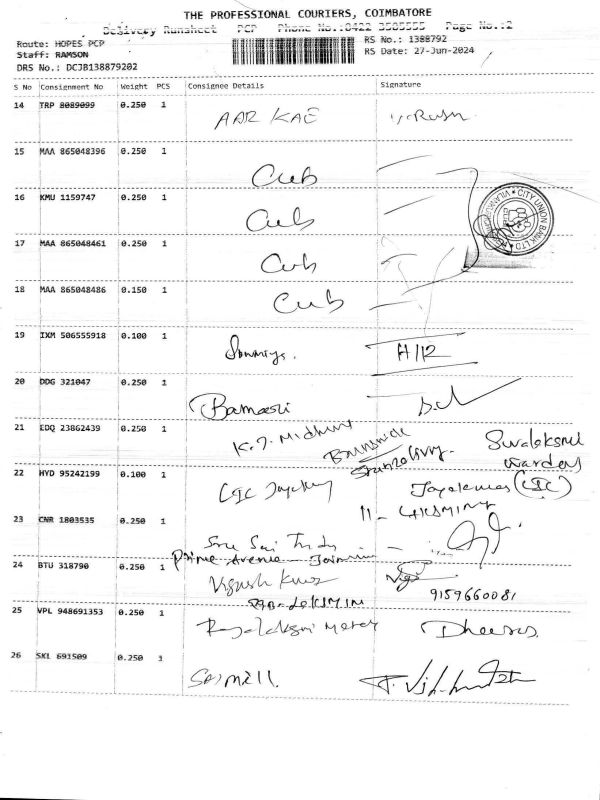 THE PROFESSIONAL COURIERS, COIMBATORE
Delivery Runsheet PCP Phone No.:0422 3505555 Page No.:2
Route: HOPES PCP
RS No.: 1388792
Staff: RAMSON
RS Date: 27-Jun-2024
DRS No.: DCJB138879202
S No Consignment No Weight PCS Consignee Details Signature
14 TRP 8089099 0.250 1 AAR KAE
15 MAA 865048396 0.250 1 Cub
16 KMU 1159747 0.250 1 Cub
CITY UNION BANK LTD
17 MAA 865048461 0.250 1 Cub
18 MAA 865048486 0.150 1 Cub
19 IXM 506555918 0.100 1 H/12
20 DDG 321047 0.250 1
21 EDQ 23862439 0.250 1 K.J. Midhun
22 HVD 95242199 0.100 1 LIC Jayakumar (LIC)
11-
23 CNR 1803535 0.250 1 Sree Sai
Prime Avenue
24 BTU 318790 0.250 1 9159660081
25 VPL 948691353 0.250 1
26 SKL 691509 0.250 1